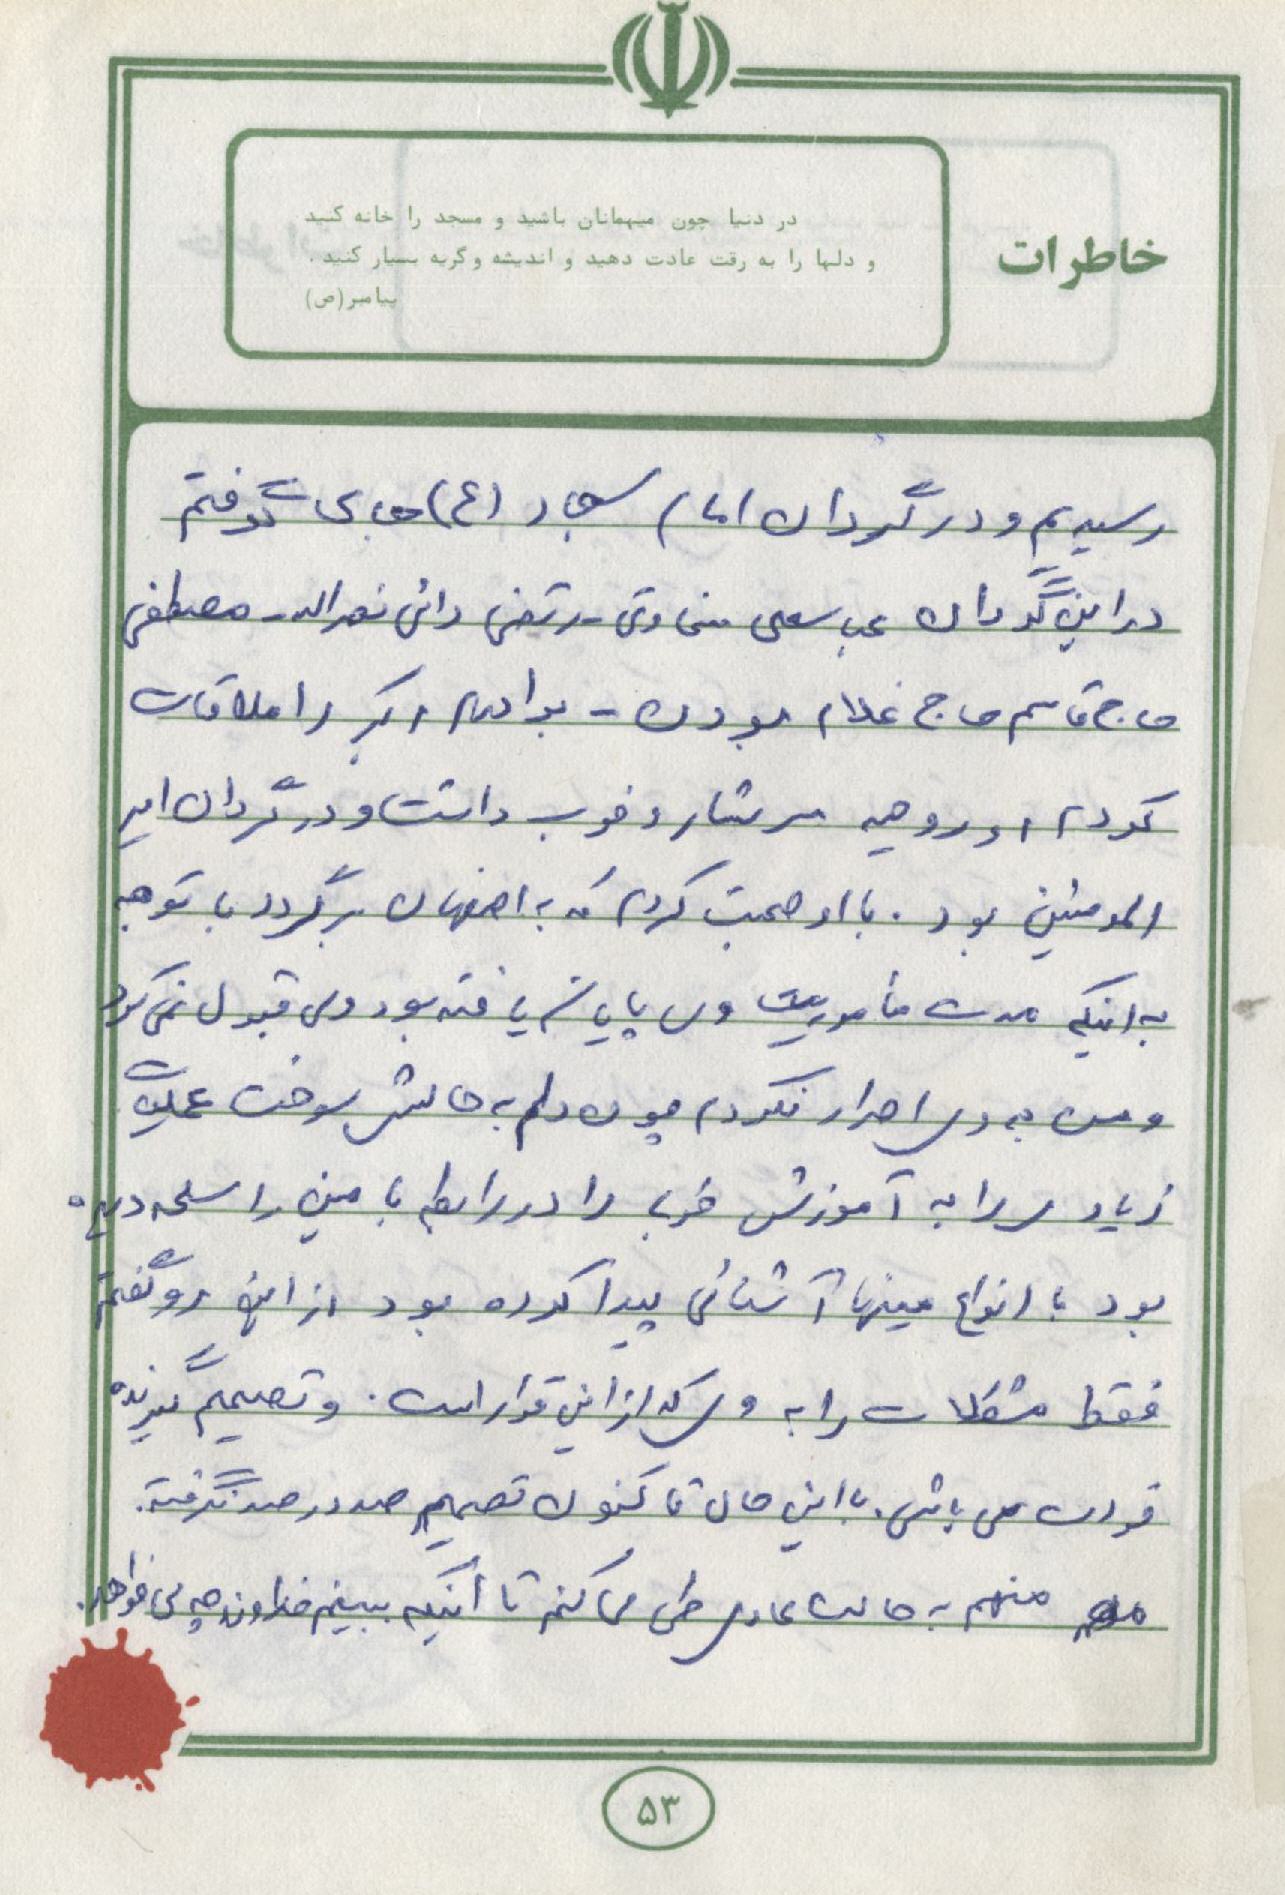 در دنیا چون میهمانان باشید و مسجد را خانه کنید
و دلها را به رقت عادت دهید و اندیشه و گریه بسیار کنید.
پیامبر(ص)
خاطرات
رسیدیم و در گردان امام سجاد (ع) جای گرفتم
در این گردان عباسعلی مرتضی دائی نصراله - مصطفی
حاج قاسم حاج غلام بودن - برادرم اکبر را ملاقات
کردم او روحیه سرشار و خوب داشت و در گردان امیر
المومنین بود . با او صحبت کردم که به اصفهان برگردد با توجه
به اینکه مدت مأموریت وی پایان یافته بود ولی قبول نمی کرد
و من به وی اصرار نکردم چون دلم به حالش سوخت عملیات
زیاد آموزش خوب را در رابطه با مین را دیده
بود با انواع مینها آشنائی پیدا کرده بود از این رو گفتم
فقط مشکلات را به وی که از این قرار است . و تصمیم گیرنده
خودت می باشی . با این حال تا کنون تصمیم صد در صد نگرفته .
منهم به حالت عادی طی می کنم تا اینکه ببینم خداوند چه می خواهد .
۵۳